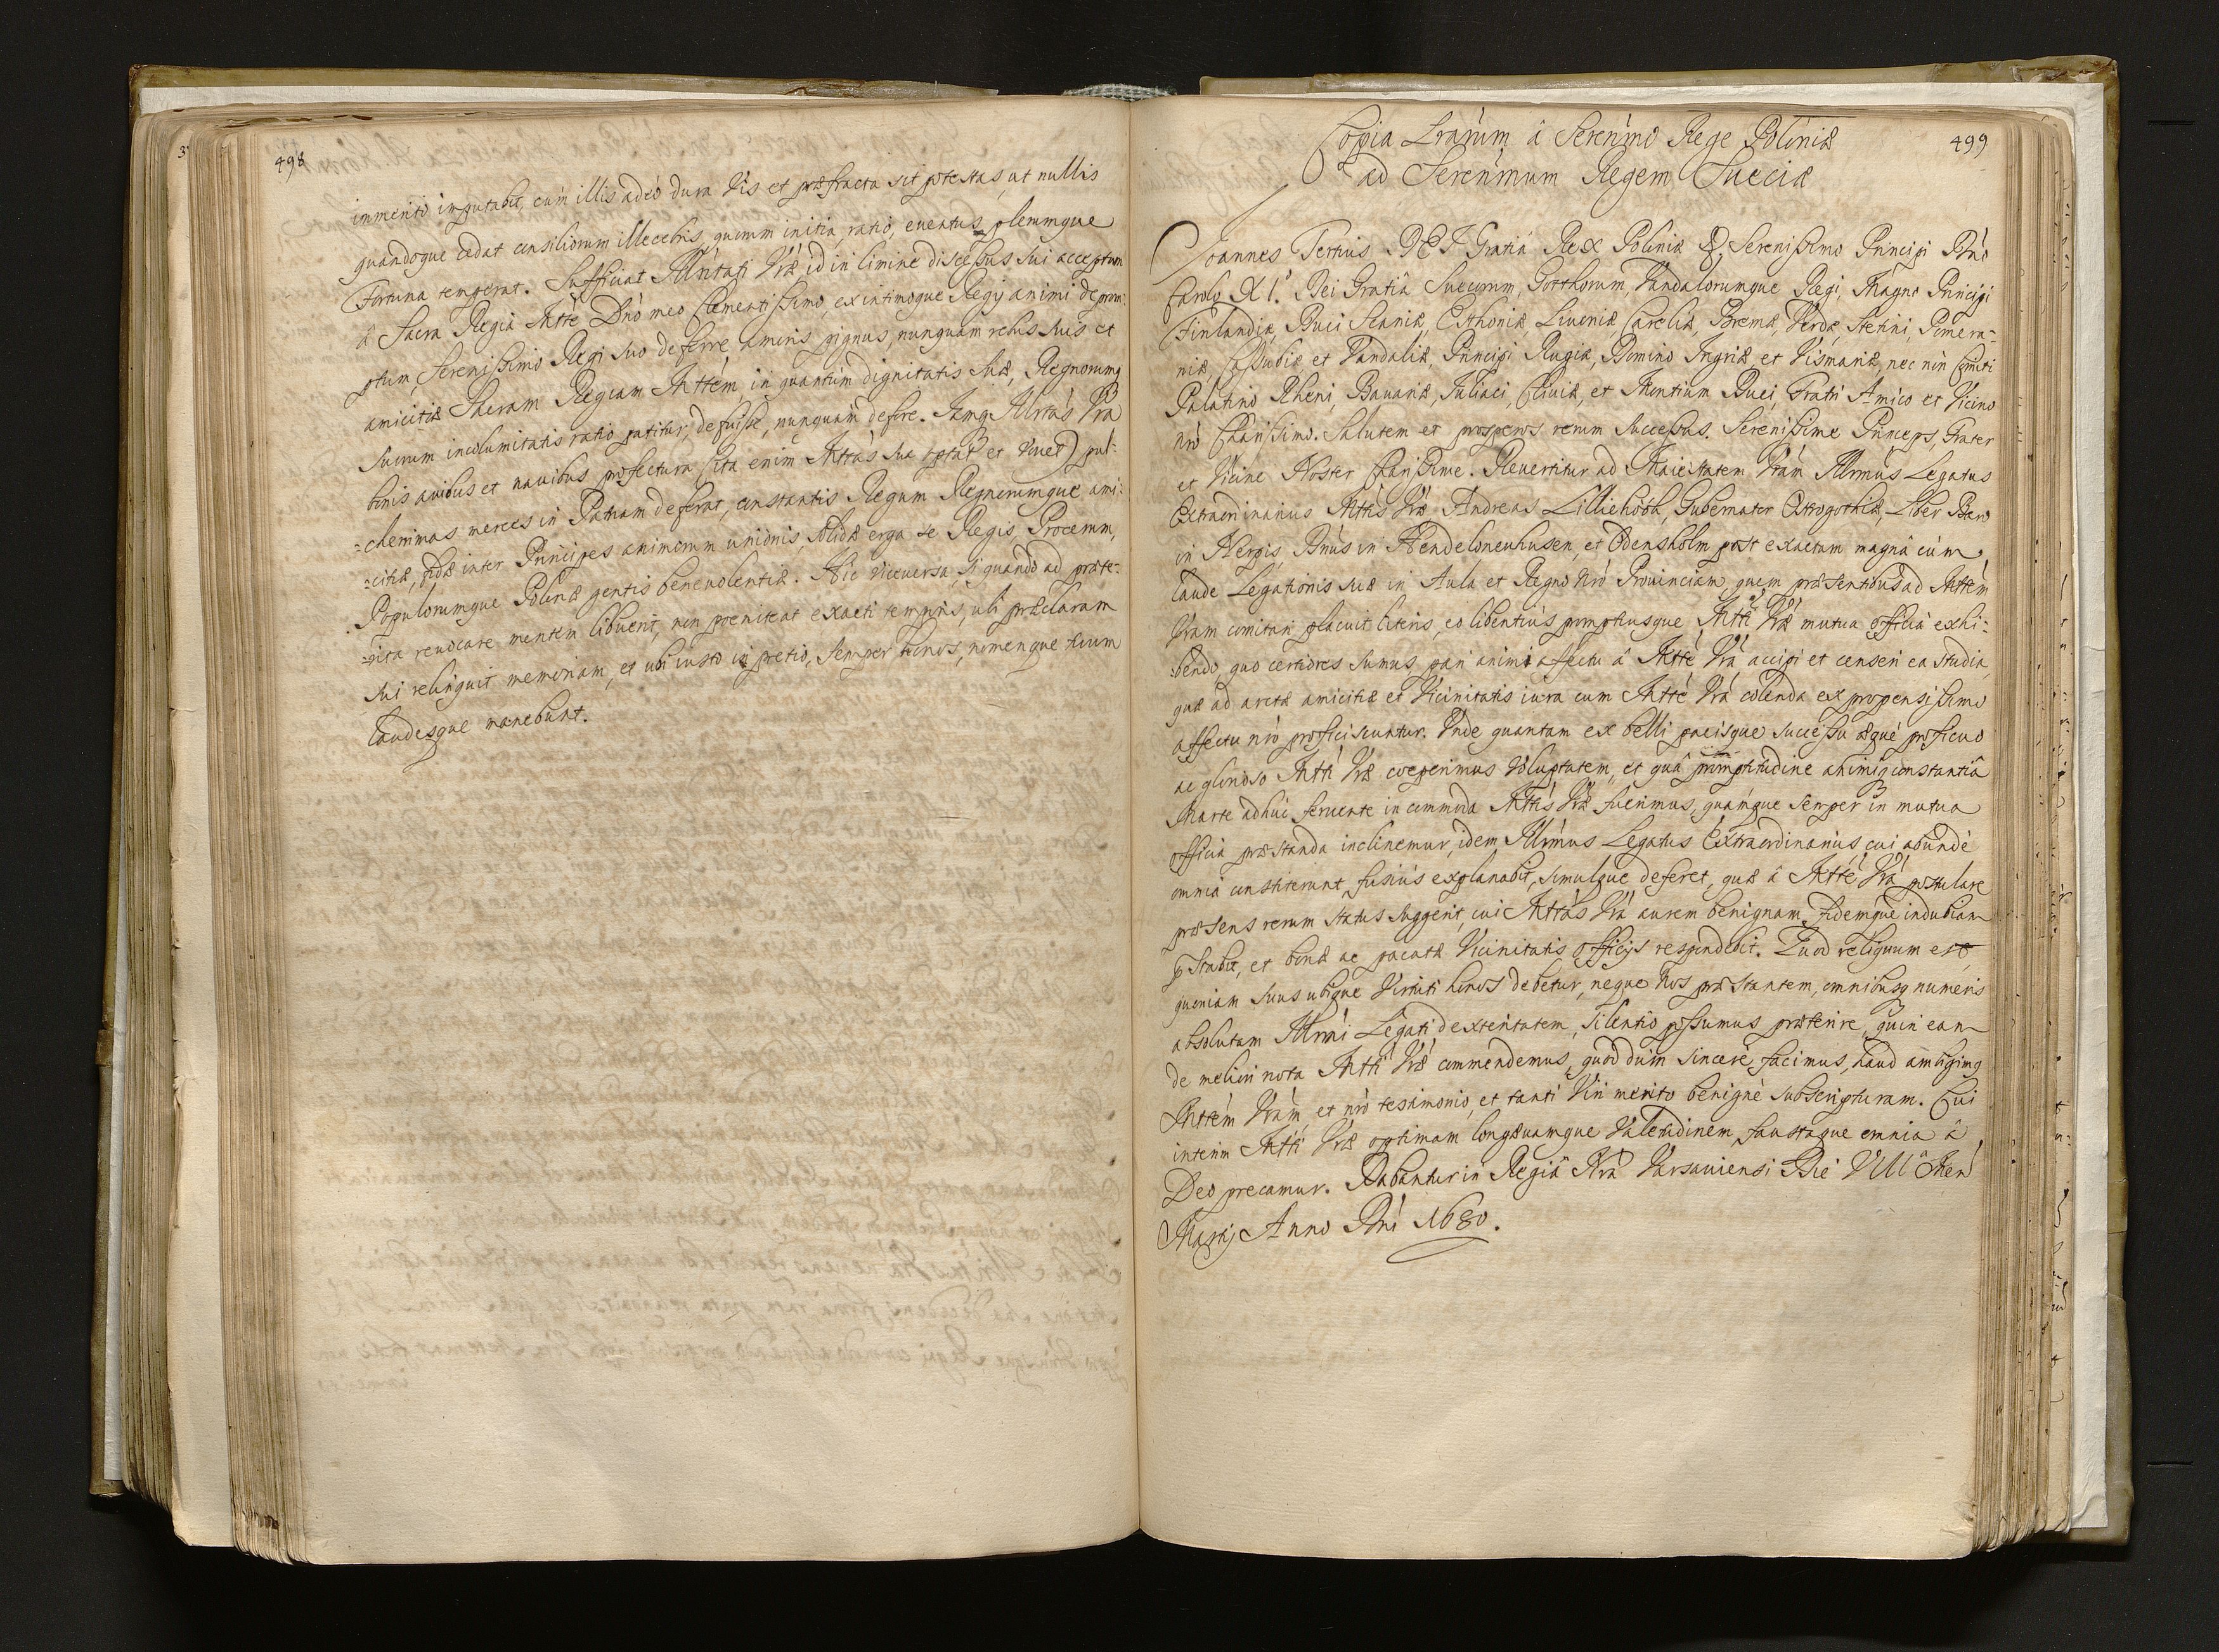 498
immerito imputabit, cum illis adeò dura Vis et præfracta sit potestas, ut nullis
quandoque cedat consiliorum illecebris, quorum initia, ratio, euentus plerumque
Fortuna temperat. Sufficiat Illritati Vræ id in limine discessus sui acceptum
â Sacra Regiâ Mtte Dno meo Clementissimo, ex intimoque Regij animi deprom:
ptum, Serenissimo Regi suo deferre amoris pignus, nunquam rebus suis et
amicitiæ Sacram Regiam Mttem, in quantum dignitatis suæ, Regnorumq
suorum incolumitatis ratio patitur, defuisse, nunquam defore. Jamq Illrtas Vra
bonis auibus et nauibus profectura (ita enim Mttas sua optat et vouet) pul:
:cherrimas merces in Patriam deferat, constantis Regum Regnorumque ami:
:citiæ, fidæ inter Principes animorum unionis, solidæ erga se Regis, Procerum,
Populorumque Polonæ gentis beneuolentiæ. Hic viceversa, si quando ad præte:
:rita reuocare mentem libuerit, non poeniteat exacti temporis, ubi præclaram
sui reliquit memoriam, et ubi iusto in pretio, semper honos, nomenque tuum
laudesque manebunt.
499
Copia Lrarum â Serenmo Rege Poloniæ
ad Serenmum Regem Sueciæ
Joannes Tertius DEI Gratiâ Rex Poloniæ &, Serenissimo Principi Dno
Carolo XI.º Dei Gratiâ Suecorum, Gotthorum, Vandalorumque Regi, Magno Principi
Finlandiæ, Duci Scaniæ, Esthoniæ Liuoniæ, Careliæ, Bremæ, Verdæ, Stetini, Pomera:
niæ, Cassubiæ et Vandaliæ, Principi Rugiæ, Domino Ingriæ et Vismariæ, nec non Comiti
Palatino Rheni, Bauariæ, Juliaci, Cliuiæ, et Montium Duci, Fratri Amico et Vicino
nro Charissimo. Salutem et prosperos rerum successus. Serenissime Princeps, Frater
et Vicine Noster Charissime. Reuertitur ad Maiestatem Vram Illrmus Legatus
Extraordinarius Mttis Vræ Andreas Lilliehöök, Gubernator Ostrogothiæ, Liber Baro
in Hergis, Dnus in Hendeloneuhusen, et Odensholm post exactam magnâ cum
laude Legationis suæ in Aula et Regno Nro Prouinciam, quem præsentibus ad Mttem
Vram comitari placuit literis, eo libentiùs promptiusque Mtti Vræ mutua officia exhi:
:bendo, quo certiores sumus pari animi affectu â Mtte Vrâ accipi et censeri ea studia,
quæ ad arctæ amicitiæ et Vicinitatis iura cum Mtte Vrâ colenda ex propensissimo
affectu nro proficiscuntur. Unde quantam ex belli pacisque successu æquè proficuo
ac glorioso Mtti Vræ coeperimus voluptatem, et quâ promptitudine animiq constantiâ
Marte adhuc feruente in commoda Mttis Vræ fuerimus, quamque semper in mutua
officia præstanda inclinemur, idem Illrmus Legatus Extraordinarius, cui abundè
omnia constiterunt fusiùs explanabit, simulque deferet, quæ â Mtte Vrâ postulare
præsens rerum status suggerit, cui Mttas Vra aurem benignam, fidemque indubiam
pstabit, et bonæ ac pacatæ Vicinitatis officijs respondebit. Quod reliquum est
quoniam suus ubique Virtuti honos debetur, neque nos præstantem, omnibusq numeris
absolutam Illrmi Legati dexteritatem, silentio possumus præterire, quin eam
de meliori nota Mtti Vræ commendemus, quod dum sincerè facimus, haud ambigimq
Mttem Vram, et nro testimonio, et tanti Viri merito benignè subscripturam. Cui
interim Mtti Vræ optimam longæuamque Valetudinem, faustaque omnia â
Deo precamur. Dabantur in Regiâ Nrâ Varsauiensi Die VIIIâ Men
Martij Anno Dni 1680.